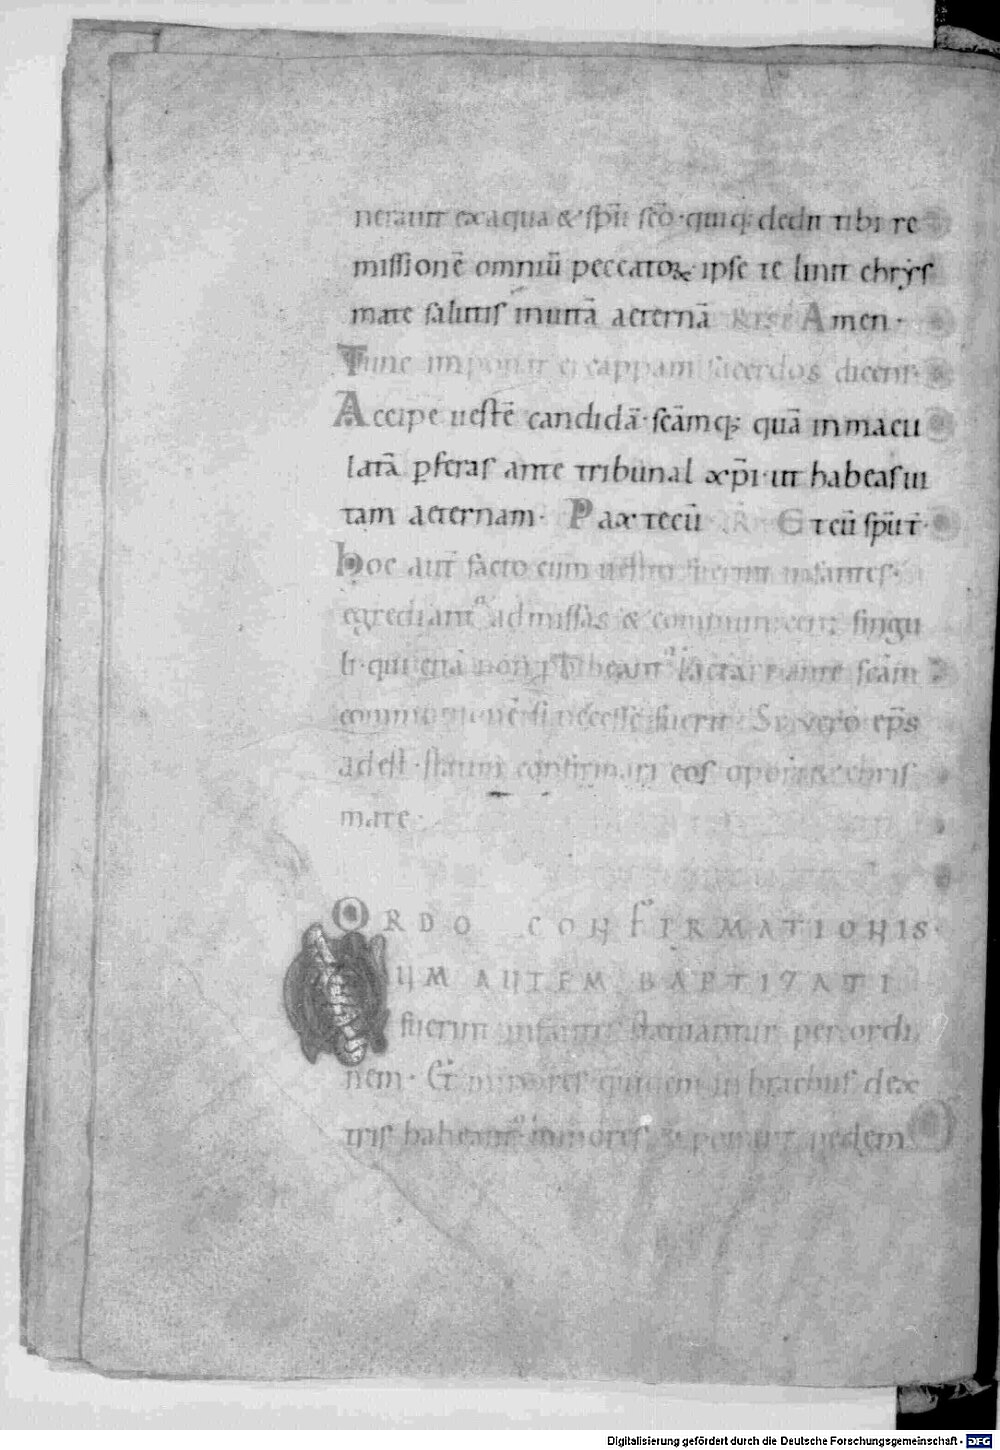 nerauit ex aqua & sp̅u sc̅o · quiq; dedit tibi re
missionē omniū peccatoꝝ · ipse te linit chrys
mate salutis in uitā aeternā Amen ·
Tunc imponit ei cappam sacerdos dicens ·
Accipe uestē candidā · sc̅amq; quā inmacu
latā ꝑferas ante tribunal xp̅i · ut habeas ui
tam aeternam · Pax tecū R Et cū sp̅u t̅ ·
hoc aut̅ facto cum fuerint infantes ·
egrediant̅ ad missas & communicent singu
li · qui etiā non ꝓhibeant̅ lactari ante sc̅am
communionē si necesse fuerit · Si vero ep̅s
adest · statim confirmari eos oportet chris
mate ·
ORDO CONFIRMATIONIS ·
UM AUTEM BAPTIZATI
fuerint infantes per ordi
nem · Et minores quidem in brachiis dex
tris habeant̅ ponunt pedem
Digitalisierung gefördert durch die Deutsche Forschungsgemeinschaft - DFG